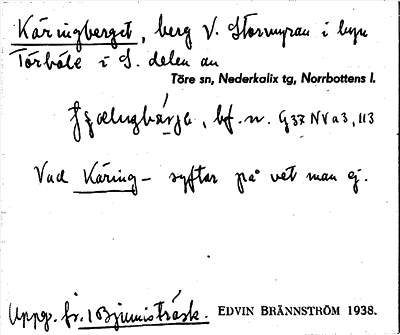 Käringberget, berg V. Stormyran i byn
Törböle i S. delen av
Töre sn, Nederkalix tg, Norrbottens l.
bf. n. G 37 NV a 3, 113
Vad Käring- syftar på vet man ej.
Uppg. fr. Bjumisträsk. EDVIN BRÄNNSTRÖM 1938.